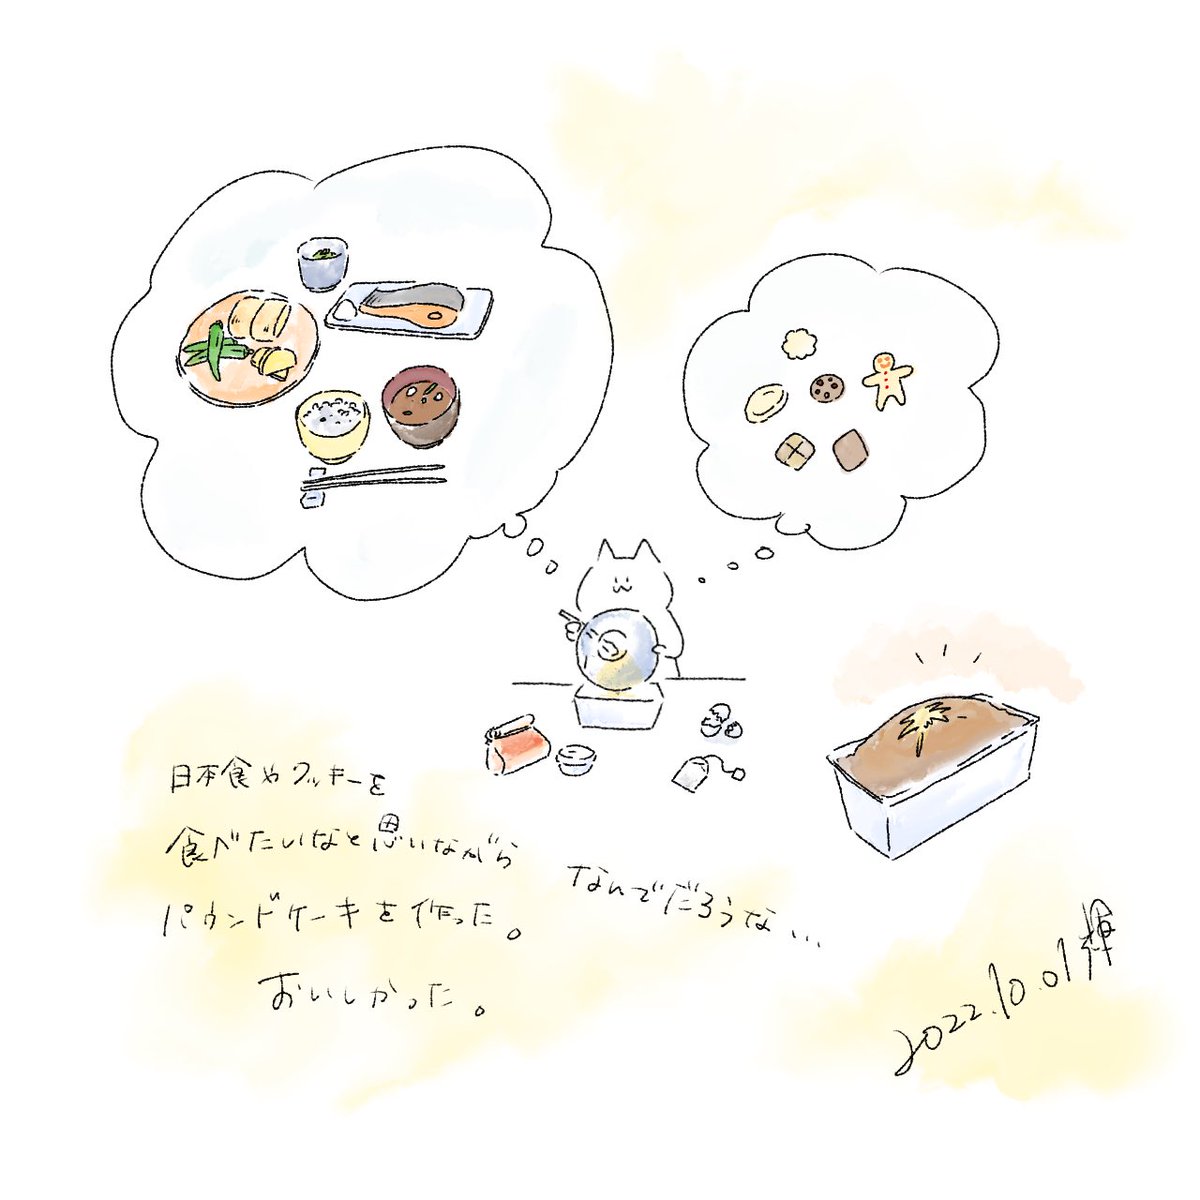 日本食やクッキーを
食べたいなと思いながら
パウンドケーキを作った。
おいしかった。
なんでだろうな...
2022.10.01輝